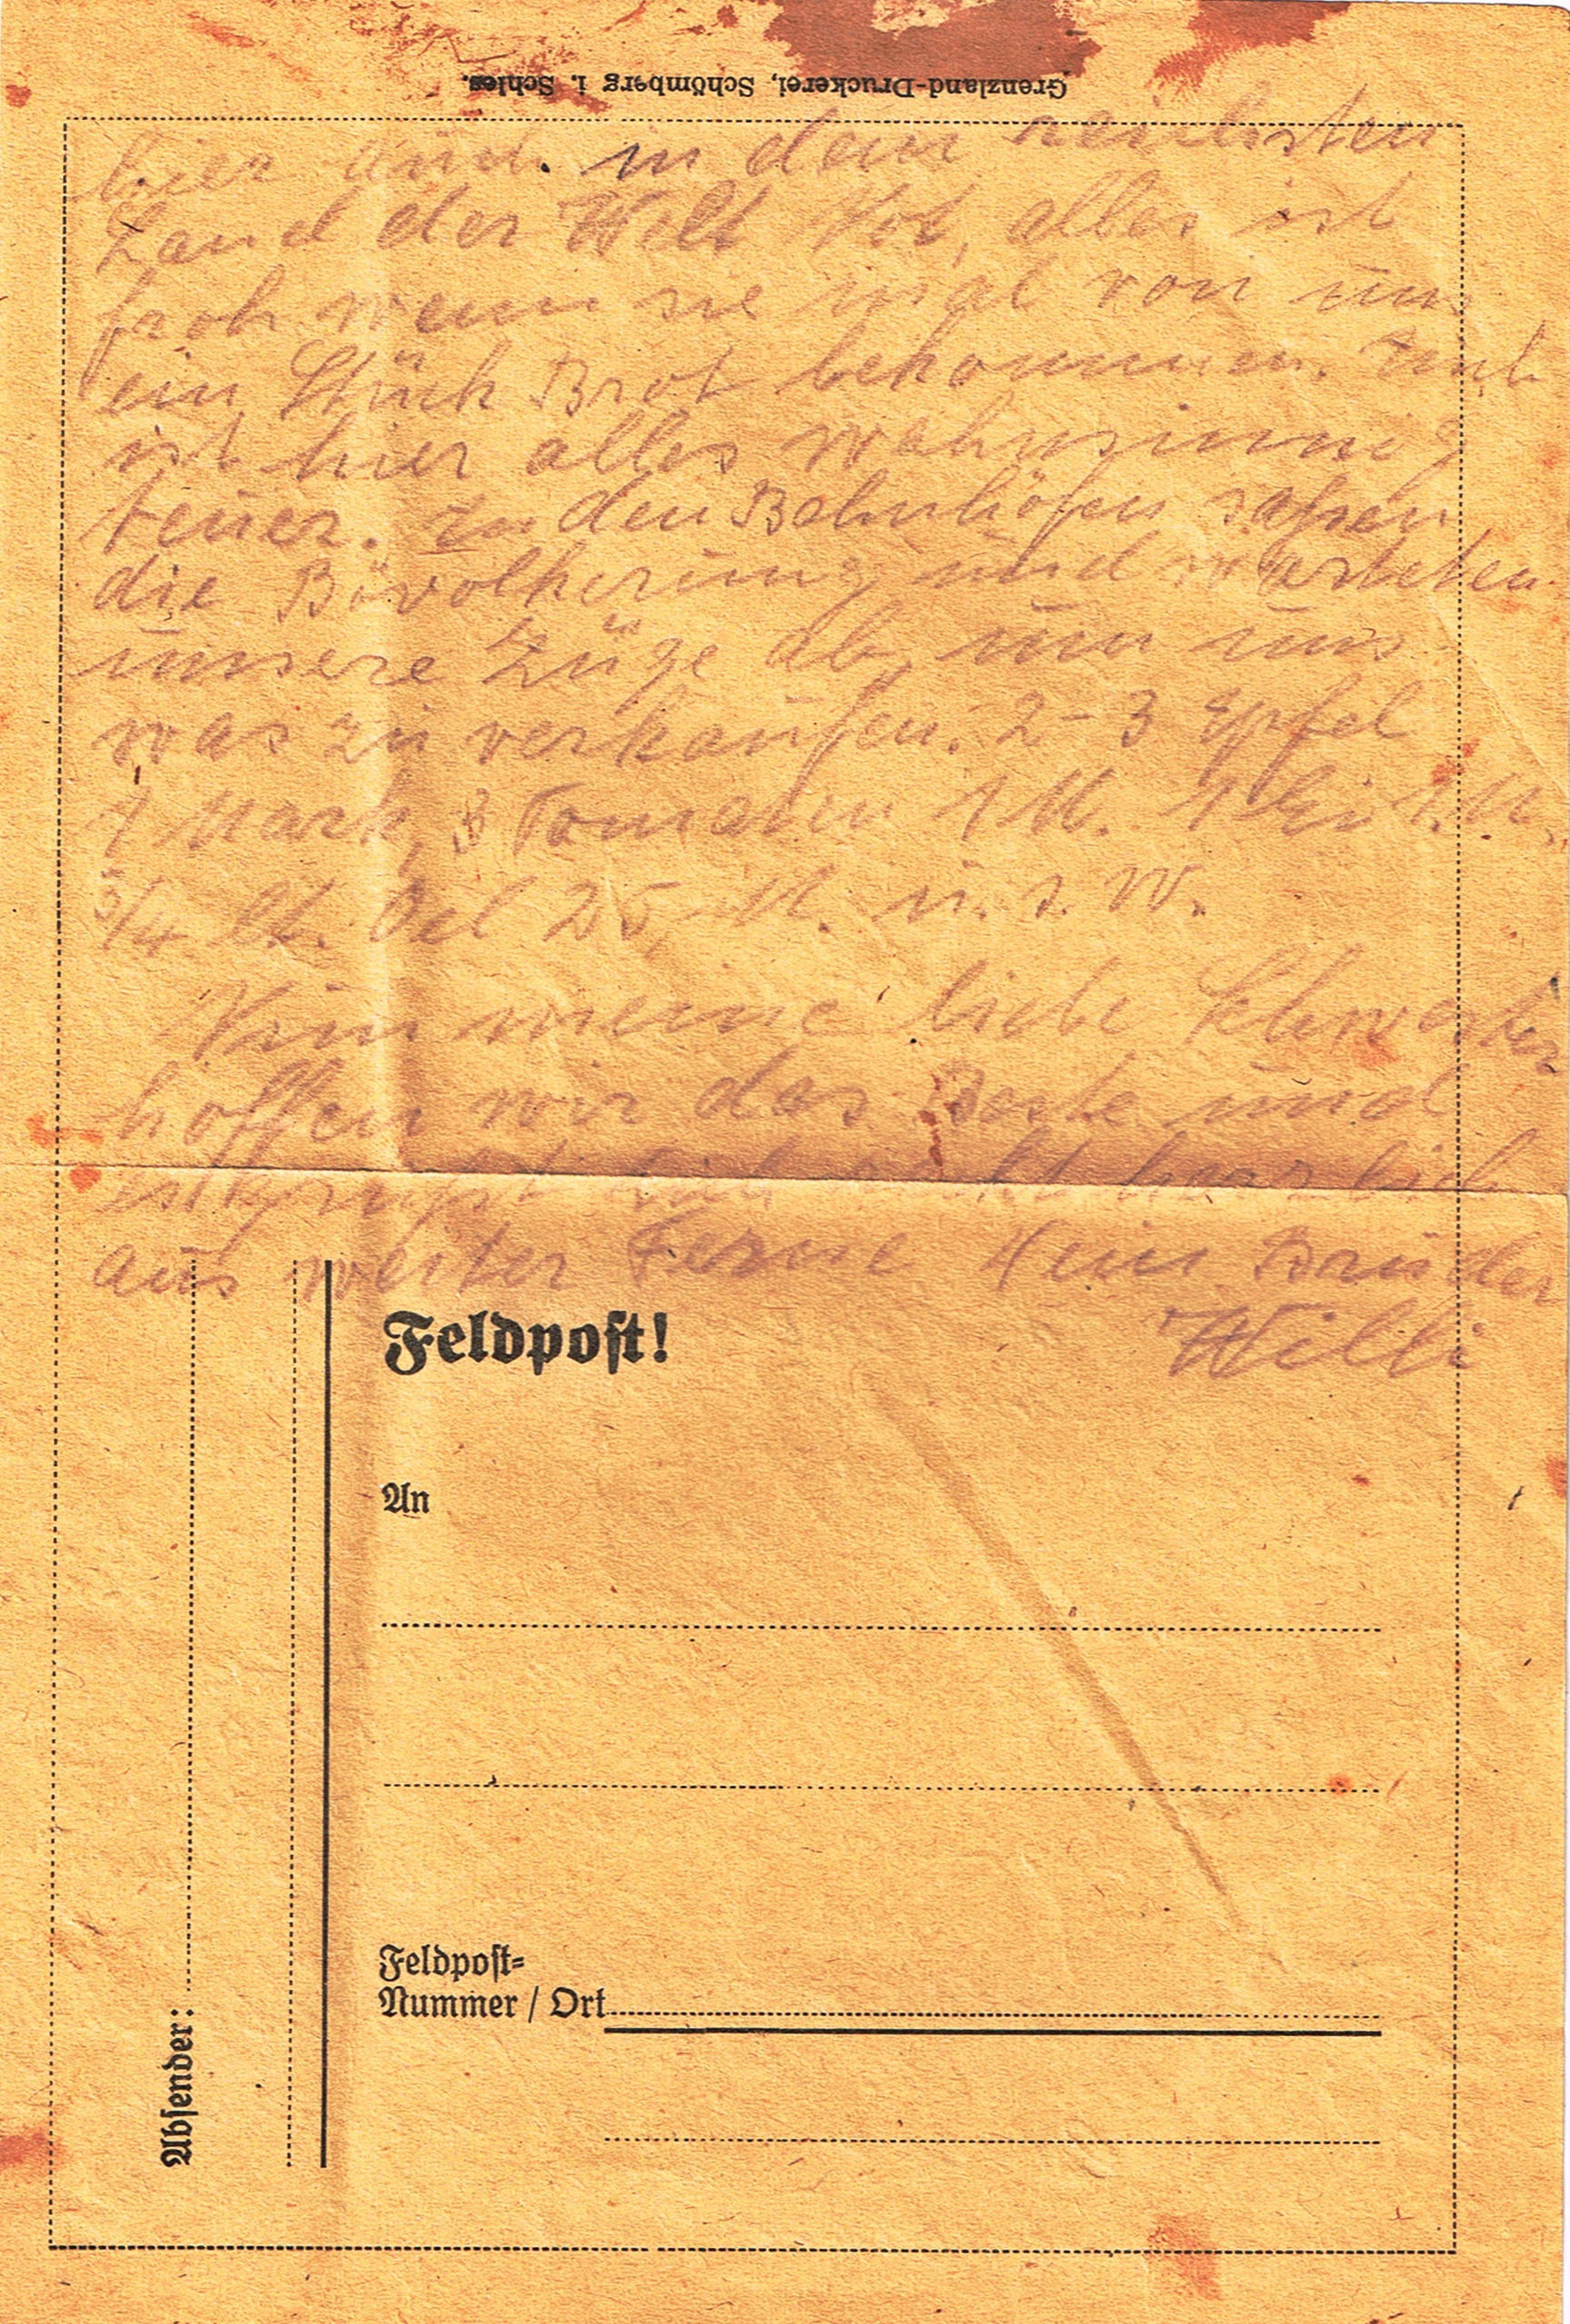 Grenzland-Druckerei, Schömberg i. Schles.
hier auch in dem reichsten
Land der Welt Not, alles ist
froh wenn sie mal von uns
ein Stück Brot bekommen. Auch
ist hier alles wahnsinnig
teuer. In den Bahnhöfen saßen
die Bövolkerung und warteten
unsere Züge ab, um uns
was zu verkaufen. 2-3 Epfel
1 Mark, 3 Tomaten 1 M. 1 Ei 1.M.
3/4 lt. Oel 25 M. u. s. w.
Nun meine liebe Schwester
hoffen wir das Beste und
es grüßt Dich herzlich
aus weiter Ferne Dein Bruder
Willi
Feldpost!
An
Feldpost=
Nummer / Ort
Absender: